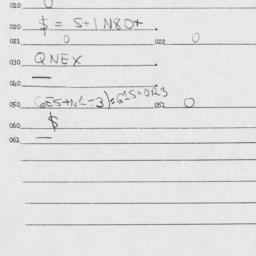 010 0
020 $ = S+1N80+.
021 0 022 0
030 QNEX.
040 —
050 GES+N1-3)=G1S=0R3 051 0
060 $
061 —